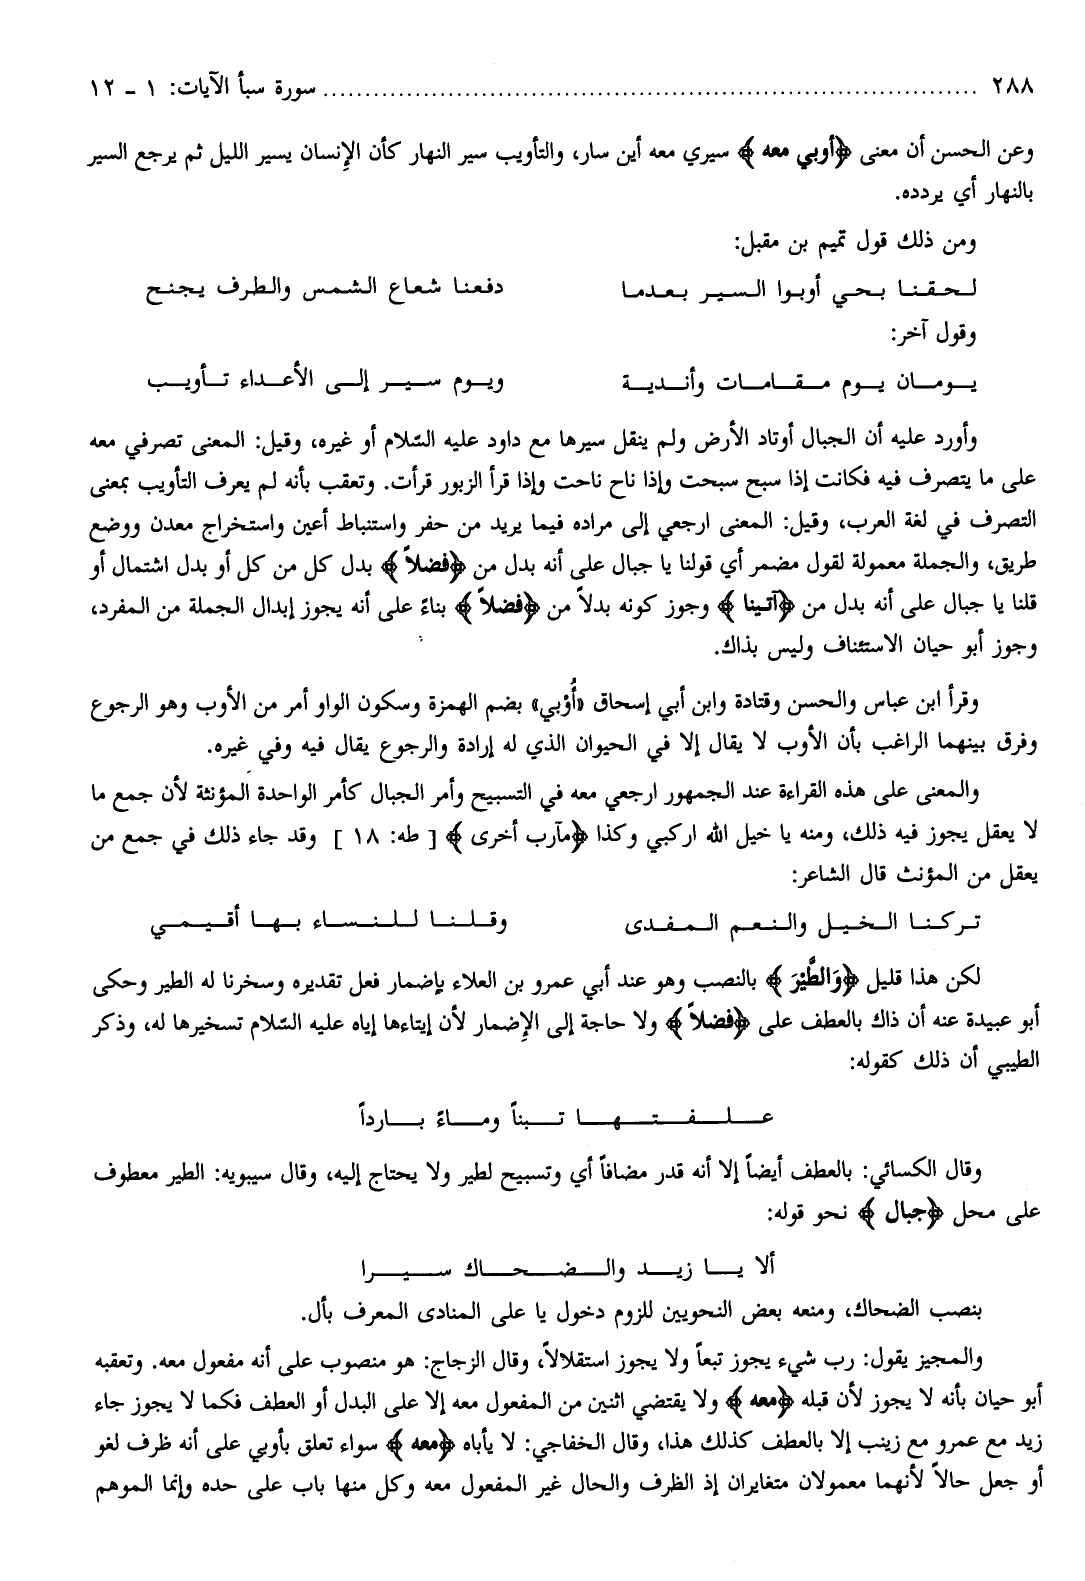 ٢٨٨ ........................................................ سورة سبأ الآيات: ١ - ١٢
وعن الحسن أن معنى ﴿أوبي معه﴾ سيري معه أين سار، والتأويب سير النهار كأن الإنسان يسير الليل ثم يرجع السير
بالنهار أي يردده.
ومن ذلك قول تميم بن مقبل:
لحقنا بحي أوبوا السير بعدما دفعنا شعاع الشمس والطرف يجنح
وقول آخر:
يومان يوم مقامات وأندية ويوم سير إلى الأعداء تأويب
وأورد عليه أن الجبال أوتاد الأرض ولم ينقل سيرها مع داود عليه السّلام أو غيره، وقيل: المعنى تصرفي معه
على ما يتصرف فيه فكانت إذا سبح سبحت وإذا ناح ناحت وإذا قرأ الزبور قرأت. وتعقب بأنه لم يعرف التأويب بمعنى
التصرف في لغة العرب، وقيل: المعنى ارجعي إلى مراده فيما يريد من حفر واستنباط أعين واستخراج معدن ووضع
طريق، والجملة معمولة لقول مضمر أي قولنا يا جبال على أنه بدل من ﴿فضلاً﴾ بدل كل من كل أو بدل اشتمال أو
قلنا يا جبال على أنه بدل من ﴿آتينا﴾ وجوز كونه بدلاً من ﴿فضلاً﴾ بناءً على أنه يجوز إبدال الجملة من المفرد،
وجوز أبو حيان الاستئناف وليس بذاك.
وقرأ ابن عباس والحسن وقتادة وابن أبي إسحاق «أُوْبي» بضم الهمزة وسكون الواو أمر من الأوب وهو الرجوع
وفرق بينهما الراغب بأن الأوب لا يقال إلا في الحيوان الذي له إرادة والرجوع يقال فيه وفي غيره.
والمعنى على هذه القراءة عند الجمهور ارجعي معه في التسبيح وأمر الجبال كأمر الواحدة المؤنثة لأن جمع ما
لا يعقل يجوز فيه ذلك، ومنه يا خيل الله اركبي وكذا ﴿مآرب أخرى﴾ [ طه: ١٨ ] وقد جاء ذلك في جمع من
يعقل من المؤنث قال الشاعر:
تركنا الخيل والنعم المفدى وقلنا للنساء بها أقيمي
لكن هذا قليل ﴿وَالطَّيْرَ﴾ بالنصب وهو عند أبي عمرو بن العلاء بإضمار فعل تقديره وسخرنا له الطير وحكى
أبو عبيدة عنه أن ذاك بالعطف على ﴿فضلاً﴾ ولا حاجة إلى الإضمار لأن إيتاءها إياه عليه السّلام تسخيرها له، وذكر
الطيبي أن ذلك كقوله:
علفتها تبناً وماءً بارداً
وقال الكسائي: بالعطف أيضاً إلا أنه قدر مضافاً أي وتسبيح لطير ولا يحتاج إليه، وقال سيبويه: الطير معطوف
على محل ﴿جبال﴾ نحو قوله:
ألا يا زيد والضحاك سيرا
بنصب الضحاك، ومنعه بعض النحويين للزوم دخول يا على المنادى المعرف بأل.
والمجيز يقول: رب شيء يجوز تبعاً ولا يجوز استقلالاً، وقال الزجاج: هو منصوب على أنه مفعول معه. وتعقبه
أبو حيان بأنه لا يجوز لأن قبله ﴿معه﴾ ولا يقتضي اثنين من المفعول معه إلا على البدل أو العطف فكما لا يجوز جاء
زيد مع عمرو مع زينب إلا بالعطف كذلك هذا، وقال الخفاجي: لا يأباه ﴿معه﴾ سواء تعلق بأوبي على أنه ظرف لغو
أو جعل حالاً لأنهما معمولان متغايران إذ الظرف والحال غير المفعول معه وكل منها باب على حده وإنما الموهم